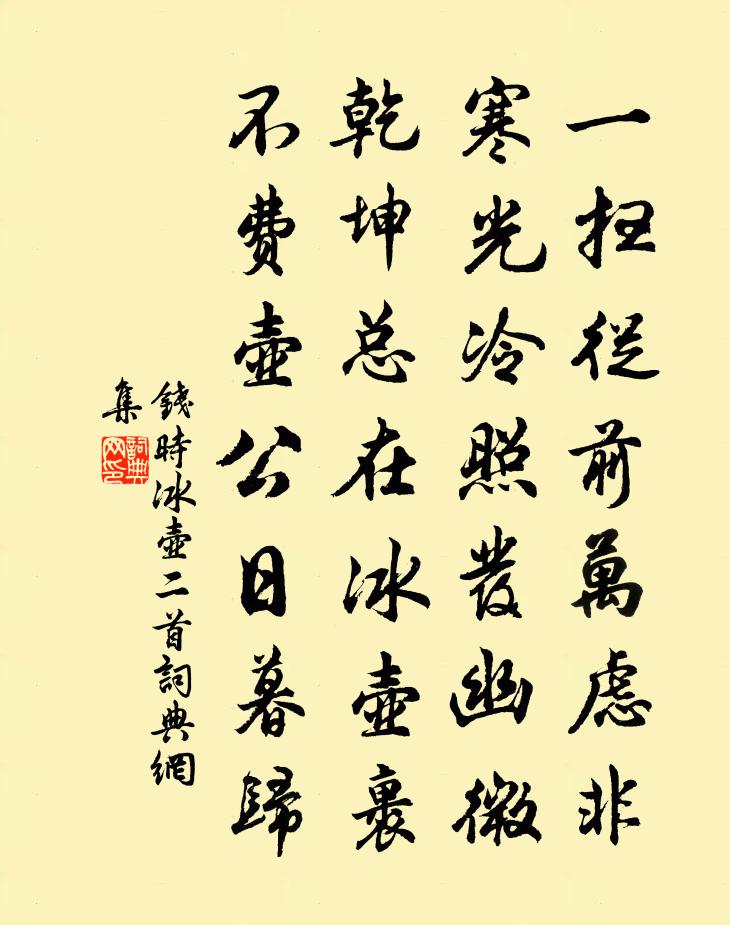 一扫從前萬慮非
寒光冷照發幽微
乾坤总在冰壺裏
不费壺公日暮歸
錢時冰壺二首詞典網
集
詞典
网印